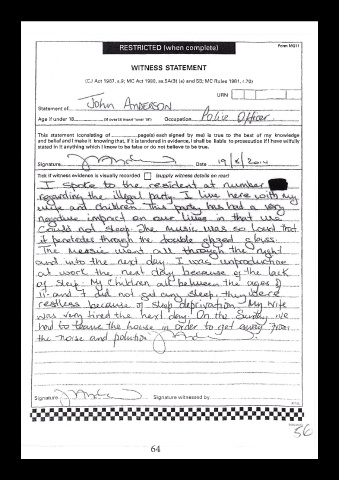 RESTRICTED (when complete)
Form MG11
WITNESS STATEMENT
(CJ Act 1967, s.9; MC Act 1980, ss.5A(3) (a) and 5B; MC Rules 1981, r.70)
URN
Statement of John ANDERSON
Age if under 18 (if over 18 insert 'over 18') Occupation Police Officer
This statement (consisting of page(s) each signed by me) is true to the best of my knowledge
and belief and I make it knowing that, if it is tendered in evidence, I shall be liable to prosecution if I have wilfully
stated in it anything which I know to be false or do not believe to be true.
Signature Date 19/8/2014
Tick if witness evidence is visually recorded (supply witness details on rear)
I spoke to the resident at number
regarding the illegal party. I live here with my
wife and children. This party has had a very
negative impact on our lives in that we
could not sleep. The music was so loud that
it penetrates through the double glazed glass.
The music went all through the night
and into the next day. I was unproductive
at work the next day because of the lack
of sleep. My children all between the ages of
11 and did not get any sleep. they were
restless because of sleep deprivation. My wife
was very tired the next day. On the Sunday we
had to leave the house in order to get away from
the noise and pollution
Signature Signature witnessed by
56
64